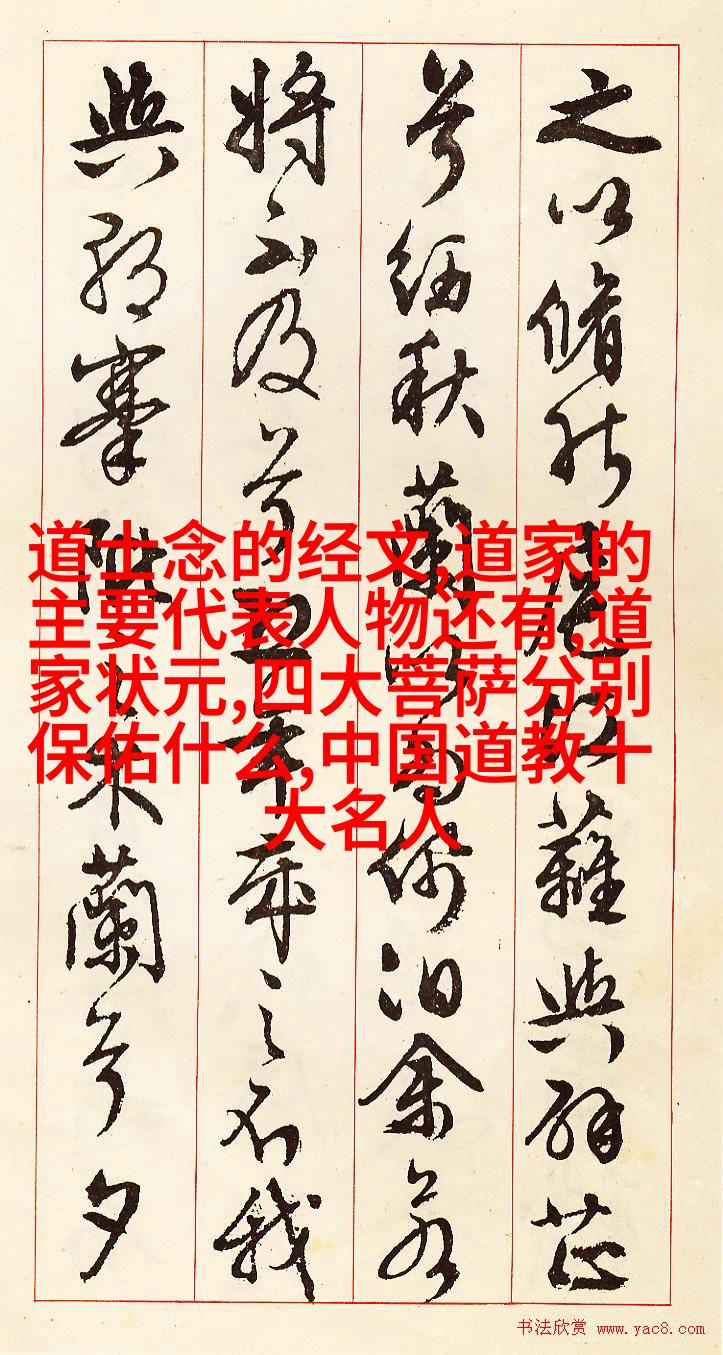 之以脩能扈江蘺與辟芷
兮紉秋蘭以為佩汩余若
將不及兮恐年歲之不我
與朝搴阰之木蘭兮夕
道士念的经文,道家的
主要代表人物还有,道
家状元,四大菩萨分别
保佑什么,中国道教十
大名人
书法欣赏 www.yac8.com